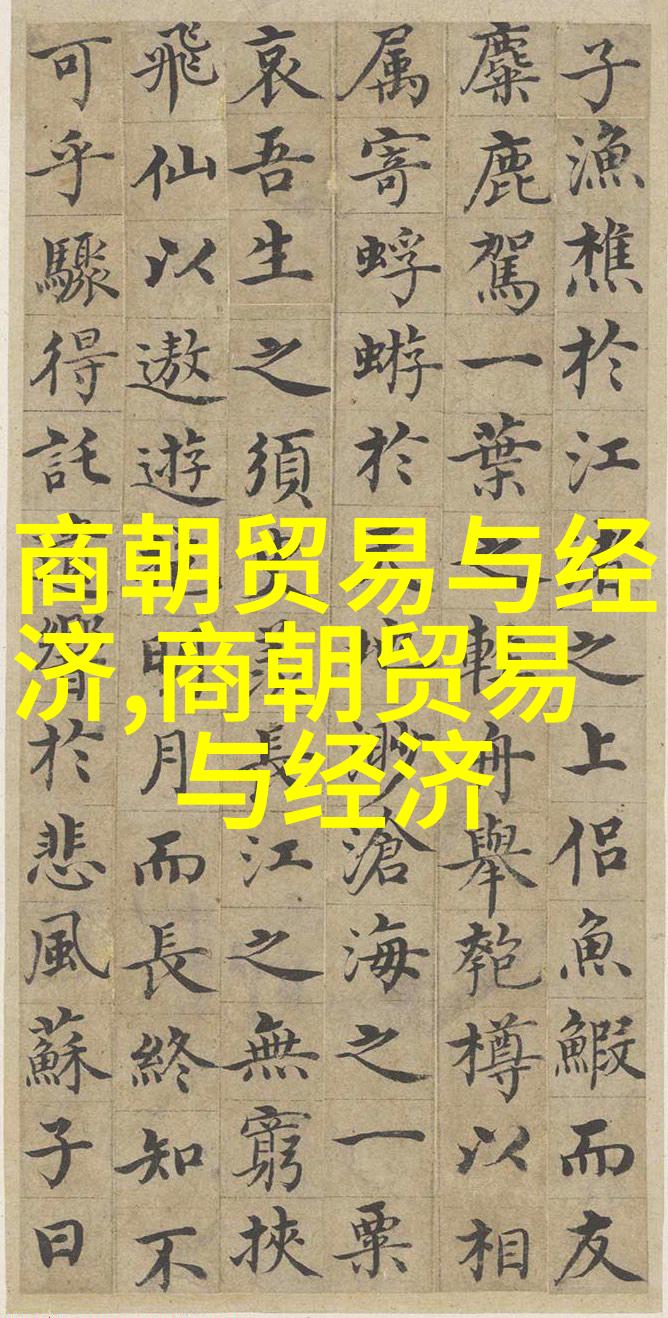 子漁樵於江之上侣魚鰕而友
麋鹿駕一葉之輕舟舉匏樽以相
属寄蜉蝣於渺滄海之一粟
哀吾生之須羡長江之無窮挾
飛仙以遨遊明月而長終知不
可乎驟得託響於悲風蘇子曰
商朝贸易与经
济,商朝贸易
与经济